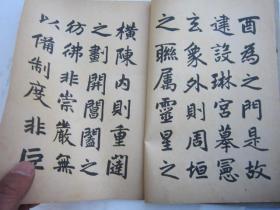 酉為之門是故
建設琳宮摹憲
玄象外則周垣
之聯属靈星之
橫陳内則重闥
之劃開閶闔之
彷彿非崇嚴無
以備制度非巨